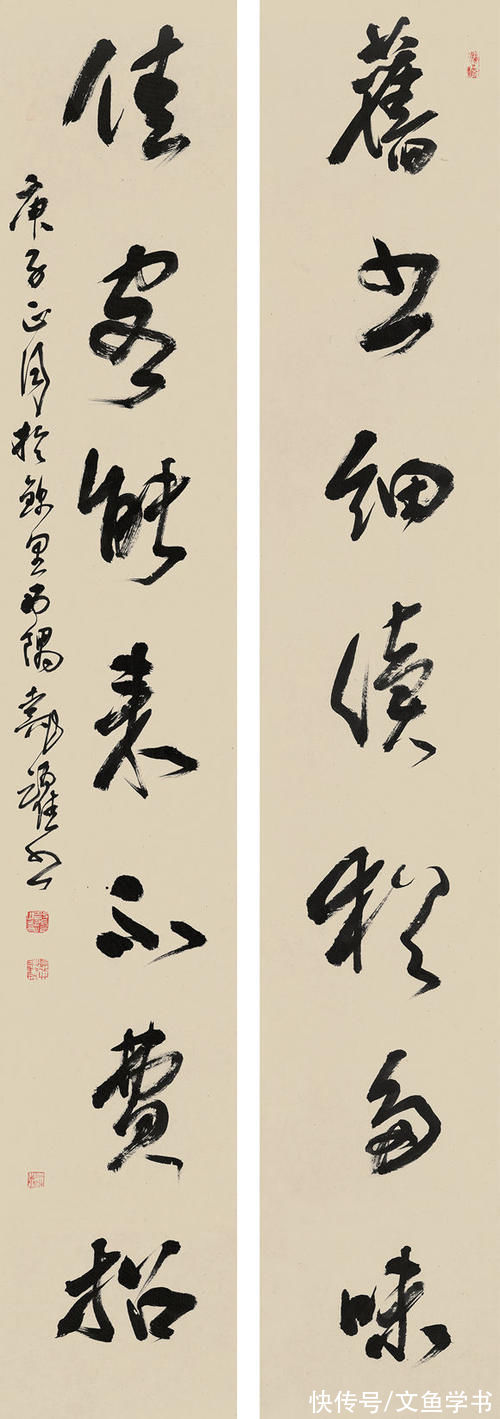 舊书細讀猶多味
佳客能来不費招
庚子正月於里西隅耀书
快传号/文鱼学书